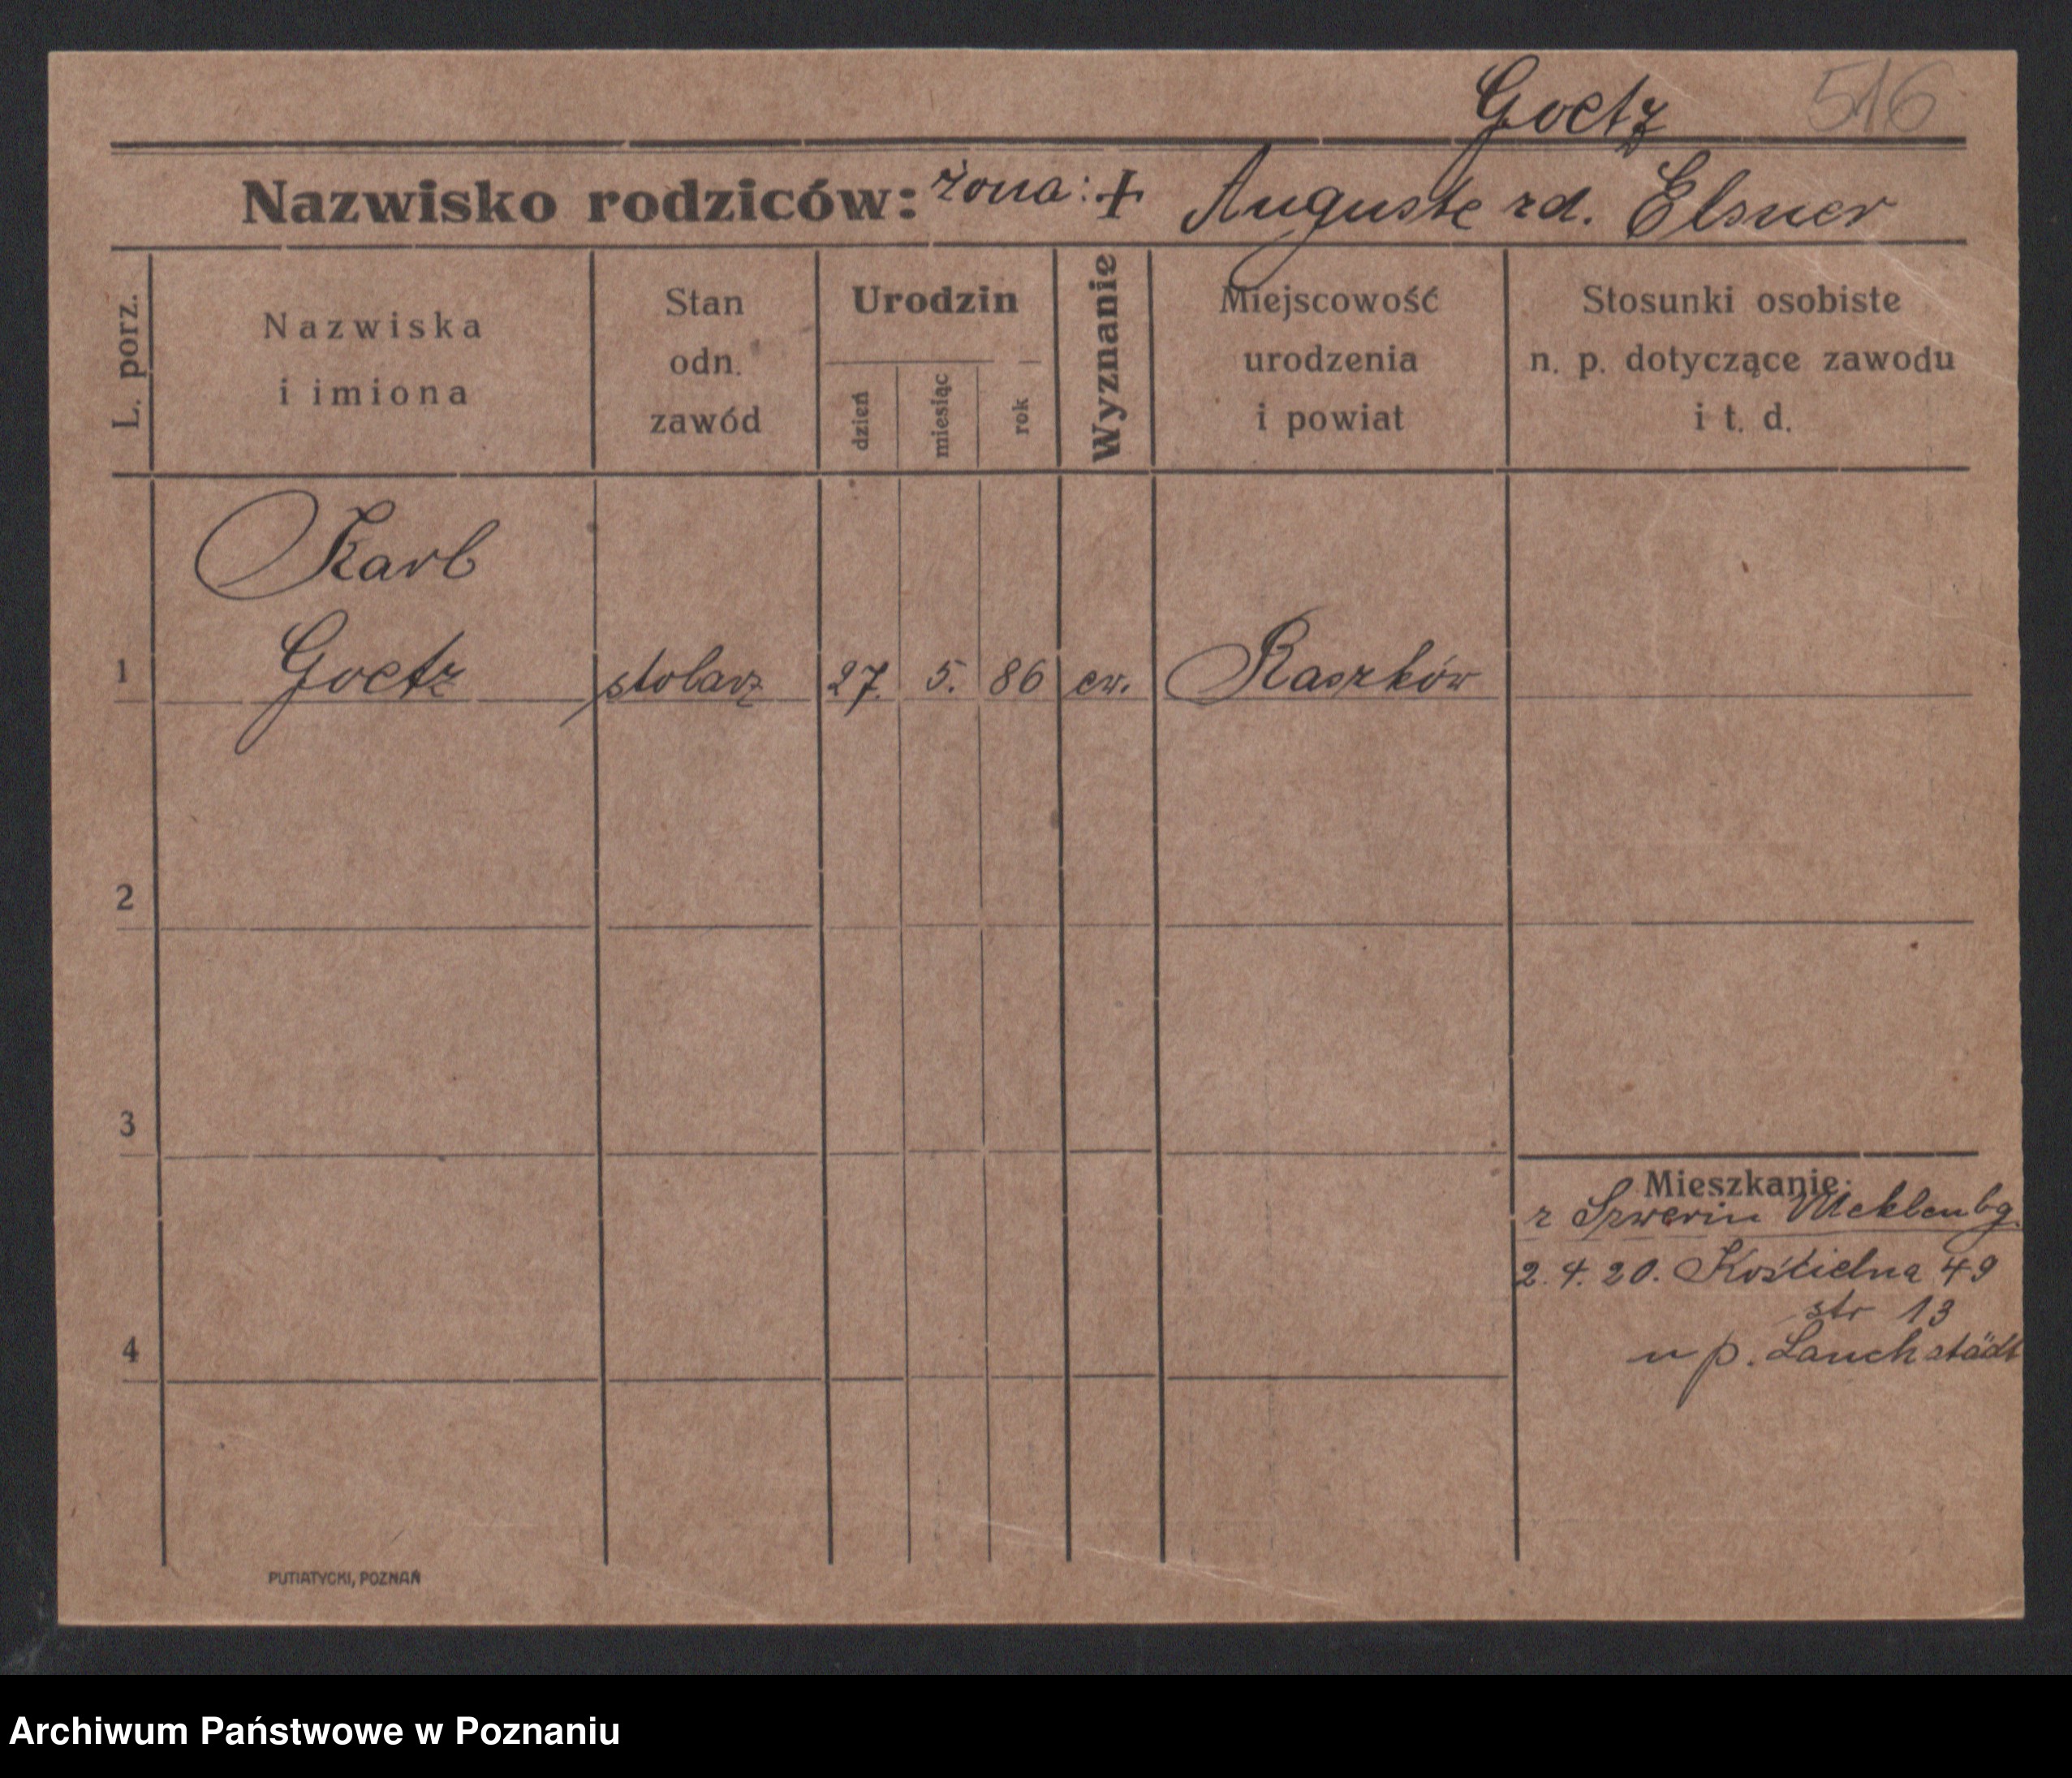 Goetz 516
Nazwisko rodziców: żona: + Auguste zd. Elsner
L. porz.
Nazwiska
i imiona
Stan
odn.
zawód
Urodzin
dzień
miesiąc
rok
Wyznanie
Miejscowość
urodzenia
i powiat
Stosunki osobiste
n. p. dotyczące zawodu
i t. d.
Karl
1 Goetz stolarz 27. 5. 86 ew. Raszków
2
3
Mieszkanie:
z Szwerin Meklenbg.
2. 4. 20. Kościelna 49
str 13
4
u p. Lauchstädt
PUTIATYCKI, POZNAŃ
Archiwum Państwowe w Poznaniu